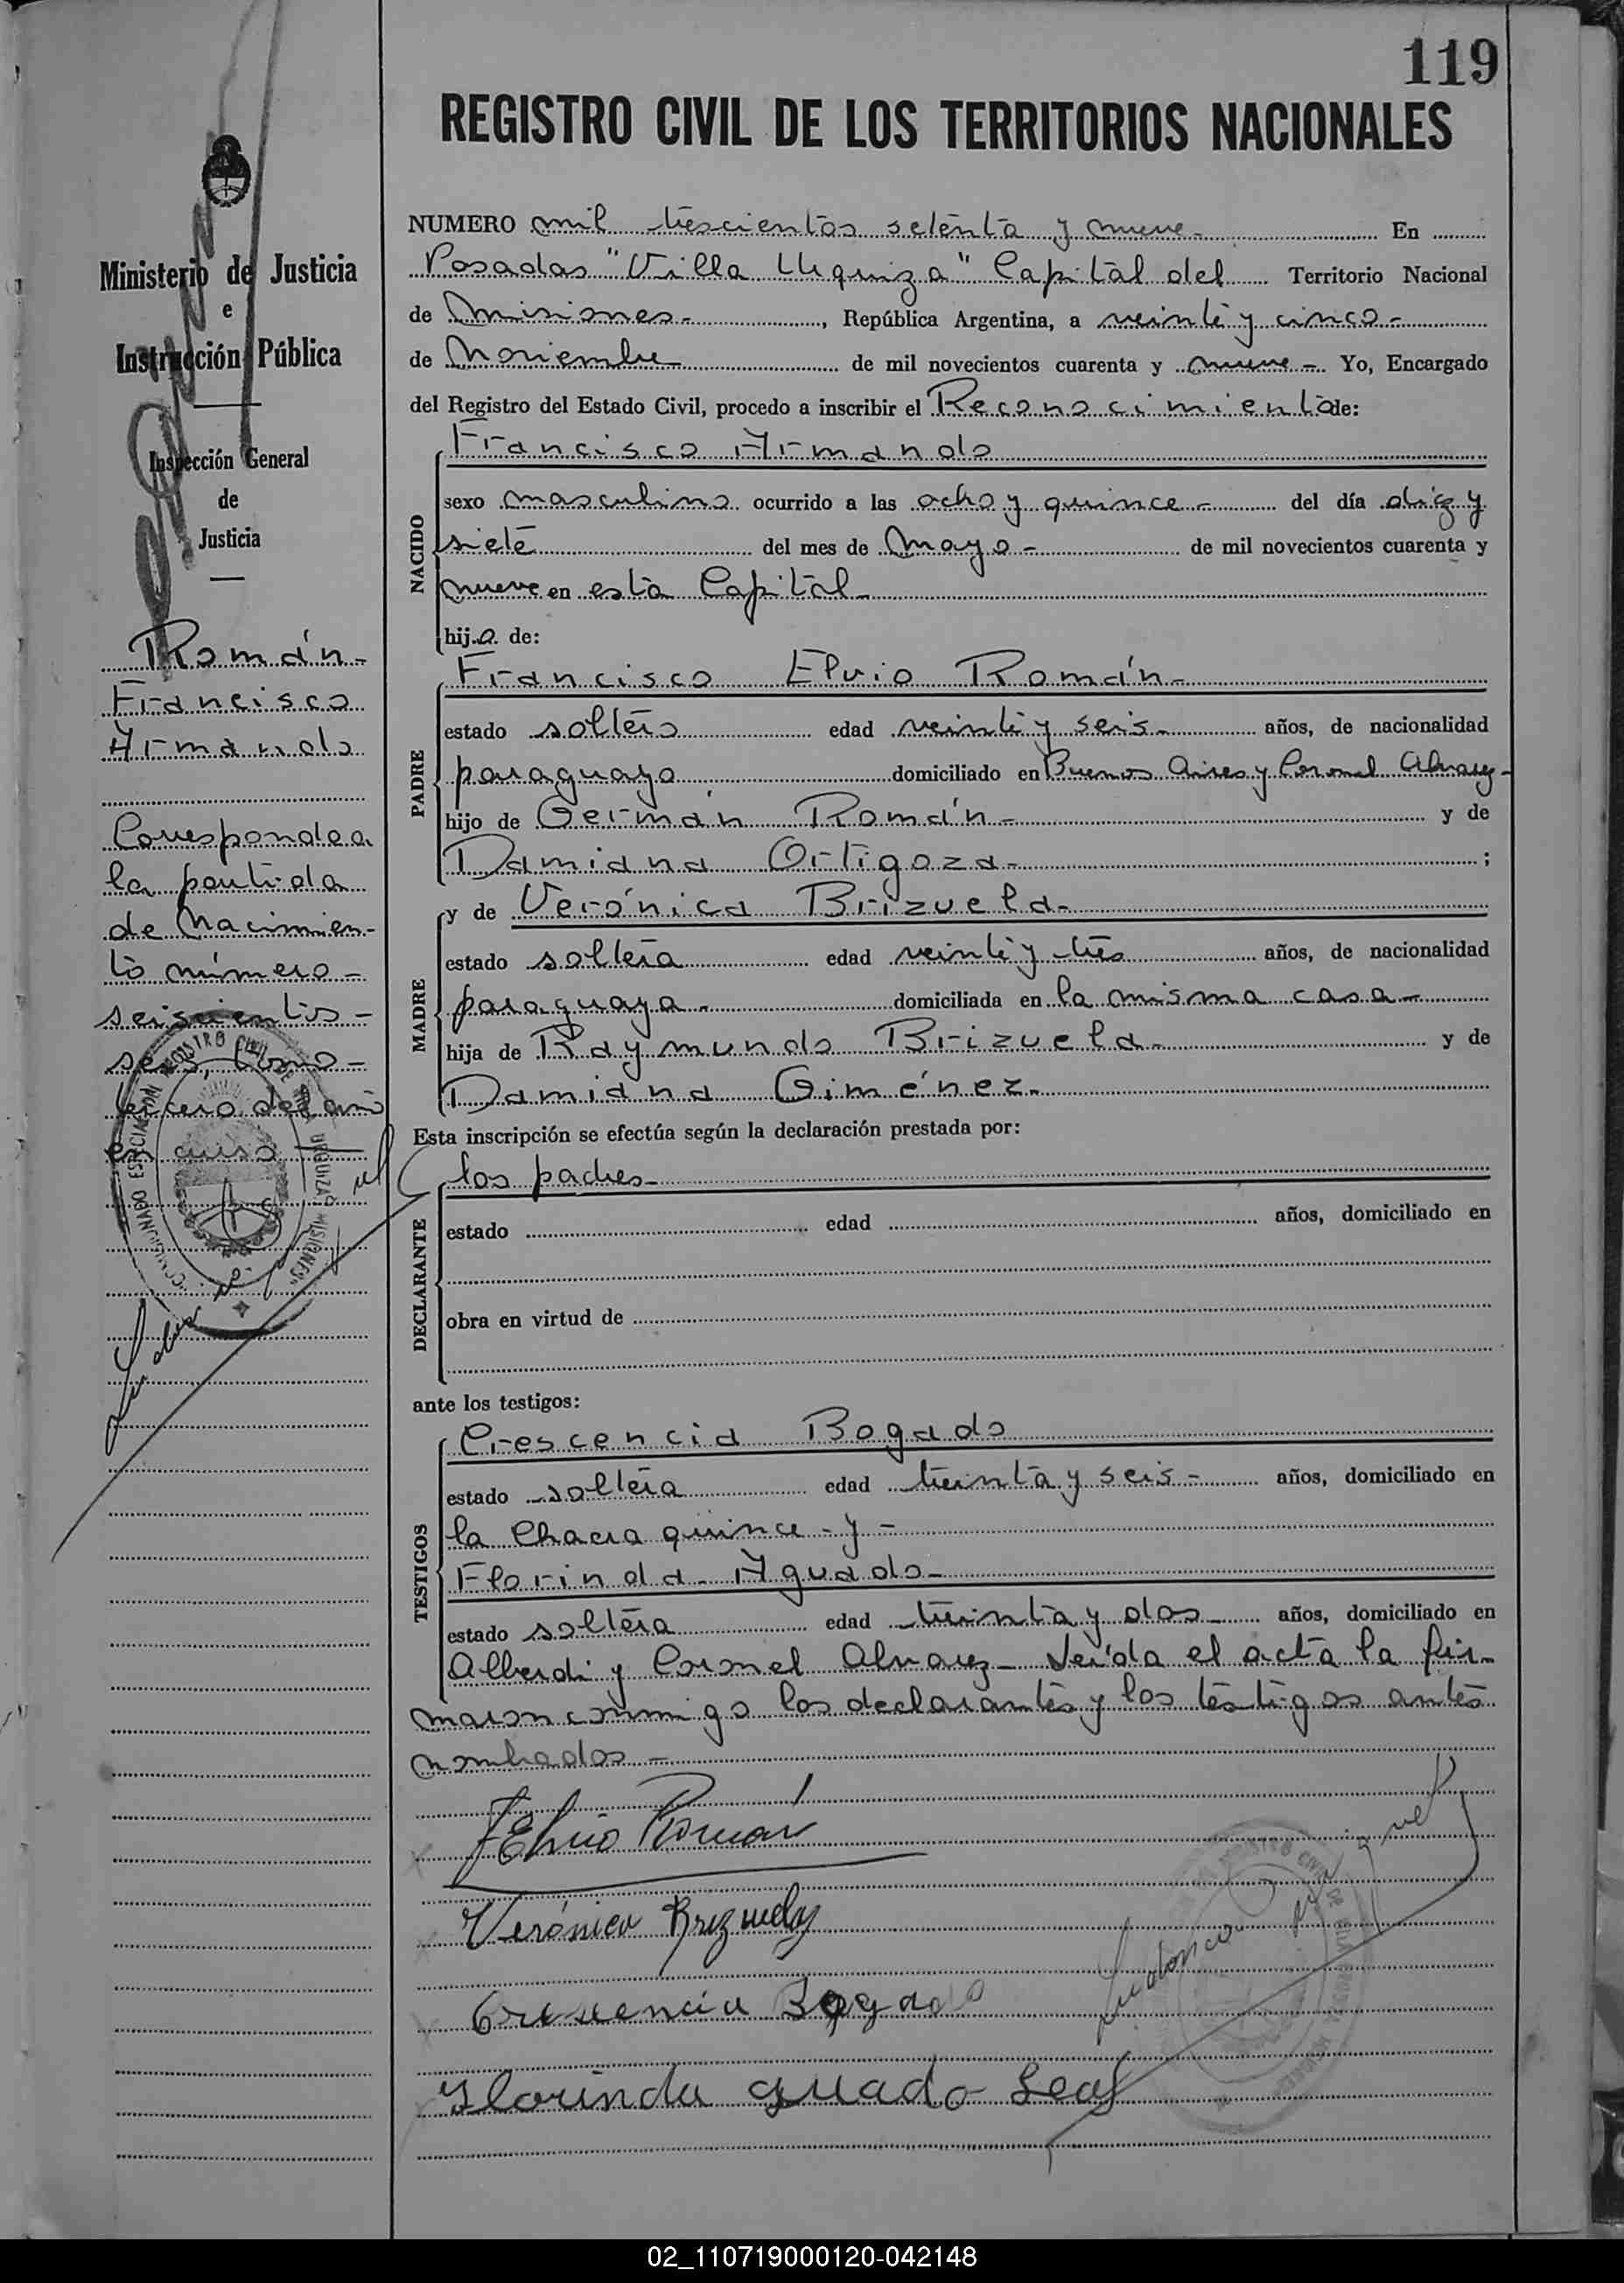 119
REGISTRO CIVIL DE LOS TERRITORIOS NACIONALES
NUMERO mil trescientos setenta y nueve - En
Posadas "Villa Urquiza" Capital del Territorio Nacional
de Misiones - , República Argentina, a veinte y cinco -
de Noviembre de mil novecientos cuarenta y nueve - Yo, Encargado
del Registro del Estado Civil, procedo a inscribir el Reconocimiento de:
Francisco Armando
NACIDO
sexo masculino ocurrido a las ocho y quince - del día diez y
siete del mes de Mayo - de mil novecientos cuarenta y
nueve en esta Capital -
hijo de:
Francisco Elvio Román -
PADRE
estado soltero edad veinte y seis - años, de nacionalidad
paraguaya domiciliado en Buenos Aires y Coronel Alvarez -
hijo de Germán Román - y de
Damiana Ortigoza - ;
MADRE
y de Verónica Brizuela -
estado soltera edad veinte y tres años, de nacionalidad
paraguaya - domiciliada en la misma casa -
hija de Raymundo Brizuela - y de
Damiana Giménez -
Esta inscripción se efectúa según la declaración prestada por:
los padres -
DECLARANTE
estado edad años, domiciliado en
obra en virtud de
ante los testigos:
Crescencia Bogado
TESTIGOS
estado soltera edad treinta y seis - años, domiciliado en
la Chacra quince - y -
Florinda Aguado -
estado soltera edad treinta y dos - años, domiciliado en
Alberdi y Coronel Alvarez - Leída el acta la fir-
maron conmigo los declarantes y los testigos antes
nombrados -
FElvio Román
Verónica Brizuela
Crescencia Bogado
Florinda Aguado Leal
Ministerio de Justicia
e
Instrucción Pública
Inspección General
de
Justicia
Román -
Francisco
Armando
Corresponde a
la partida
de Nacimien-
to número -
seiscientos -
seis, tomo -
tercero del año
en curso
02_110719000120-042148